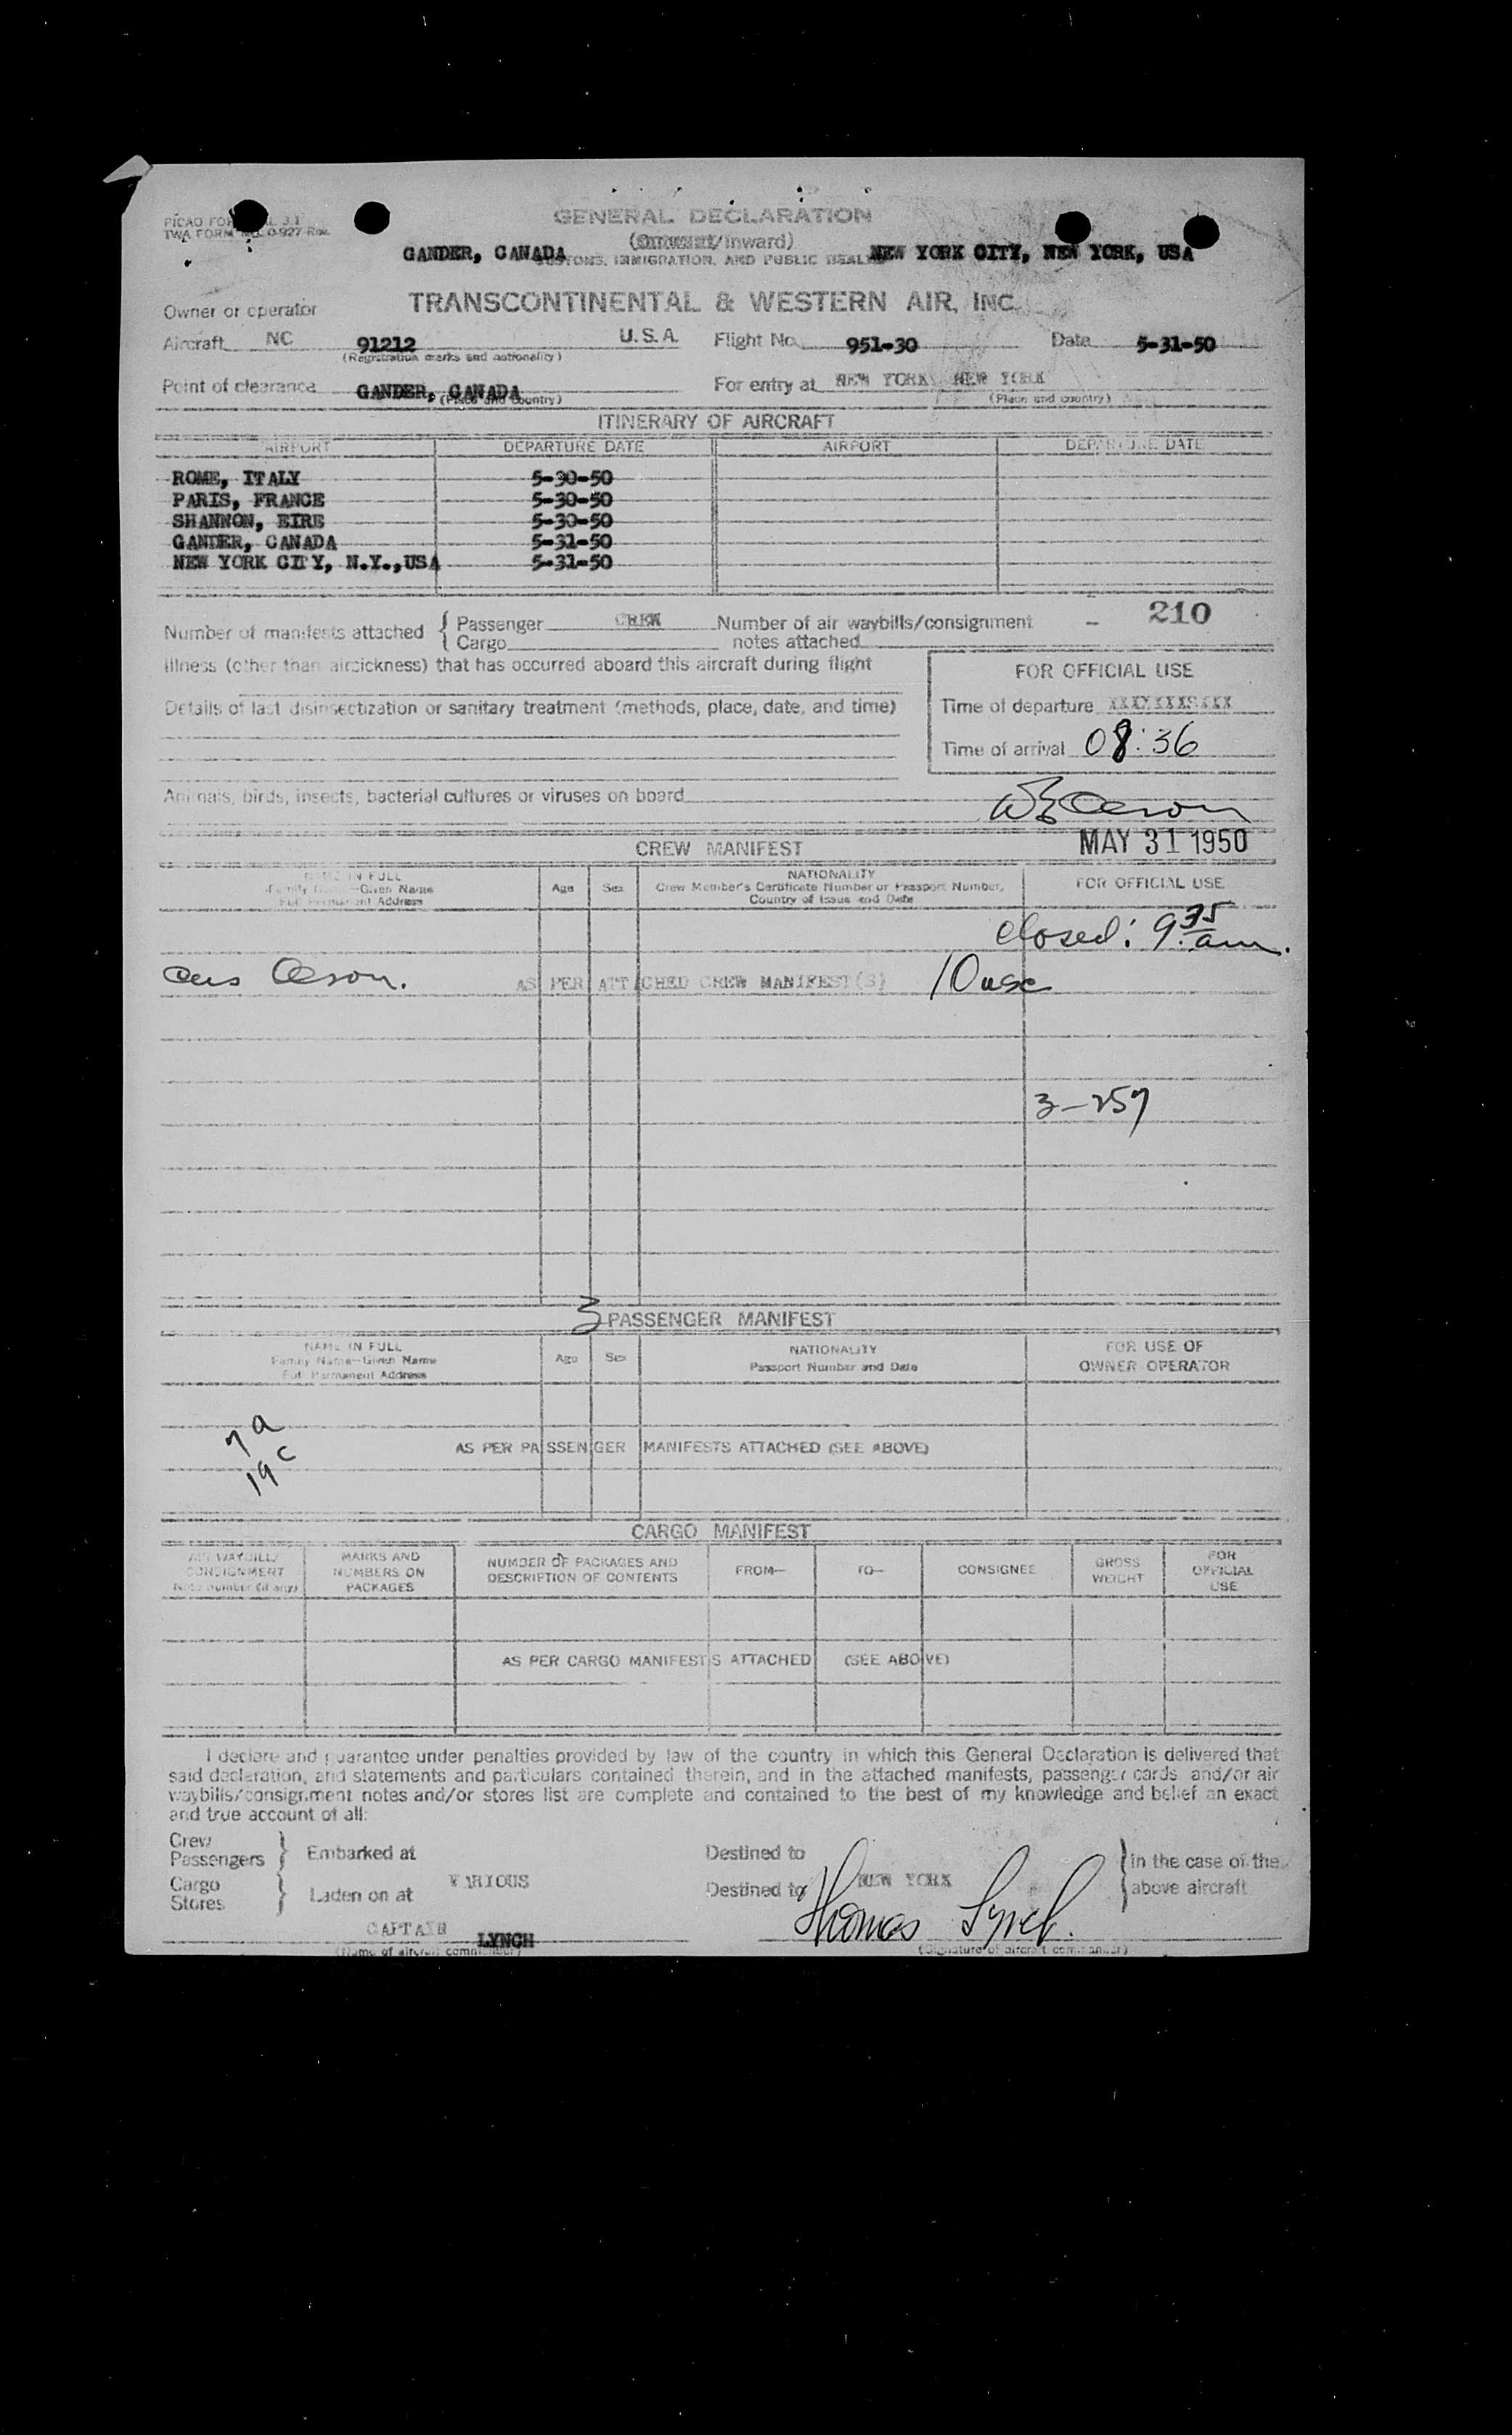 GENERAL DECLARATION
TWA FORM
(Outward/Inward)
GANDER, CANADA
NEW YORK CITY, NEW YORK, USA
CUSTOMS, IMMIGRATION, AND PUBLIC HEALTH
Owner or operator TRANSCONTINENTAL & WESTERN AIR, INC.
Aircraft NC 91212 U.S.A. Flight No. 951-30 Date 5-31-50
(Registration marks and nationality)
Point of clearance GANDER, CANADA For entry at NEW YORK, NEW YORK
(Place and country) (Place and country)
ITINERARY OF AIRCRAFT
AIRPORT DEPARTURE DATE AIRPORT DEPARTURE DATE
ROME, ITALY 5-30-50
PARIS, FRANCE 5-30-50
SHANNON, EIRE 5-30-50
GANDER, CANADA 5-31-50
NEW YORK CITY, N.Y.,USA 5-31-50
Number of manifests attached { Passenger CREW Number of air waybills/consignment – 210
{ Cargo notes attached
Illness (other than airsickness) that has occurred aboard this aircraft during flight
FOR OFFICIAL USE
Details of last disinsectization or sanitary treatment (methods, place, date, and time)
Time of departure
Time of arrival 08:36
Animals, birds, insects, bacterial cultures or viruses on board
MAY 31 1950
CREW MANIFEST
NAME IN FULL
Family Name—Given Name
Full Permanent Address
Age Sex
NATIONALITY
Crew Member's Certificate Number or Passport Number,
Country of Issue and Date
FOR OFFICIAL USE
closed: 9 35 am.
AS PER ATTACHED CREW MANIFEST(S) 10 usc
3-257
3 PASSENGER MANIFEST
NAME IN FULL
Family Name—Given Name
Full Permanent Address
Age Sex
NATIONALITY
Passport Number and Date
FOR USE OF
OWNER OPERATOR
7 a
19 c
AS PER PASSENGER MANIFESTS ATTACHED (SEE ABOVE)
CARGO MANIFEST
AIR WAYBILL/
CONSIGNMENT
Note number (if any)
MARKS AND
NUMBERS ON
PACKAGES
NUMBER OF PACKAGES AND
DESCRIPTION OF CONTENTS
FROM— TO— CONSIGNEE
GROSS
WEIGHT
FOR
OFFICIAL
USE
AS PER CARGO MANIFESTS ATTACHED (SEE ABOVE)
I declare and guarantee under penalties provided by law of the country in which this General Declaration is delivered that
said declaration, and statements and particulars contained therein, and in the attached manifests, passenger cards and/or air
waybills/consignment notes and/or stores list are complete and contained to the best of my knowledge and belief an exact
and true account of all:
Crew
Passengers } Embarked at Destined to } in the case of the
Cargo
Stores } Laden on at VARIOUS Destined to NEW YORK } above aircraft
CAPTAIN LYNCH Thomas Lynch.
(Name of aircraft commander) (Signature of aircraft commander)